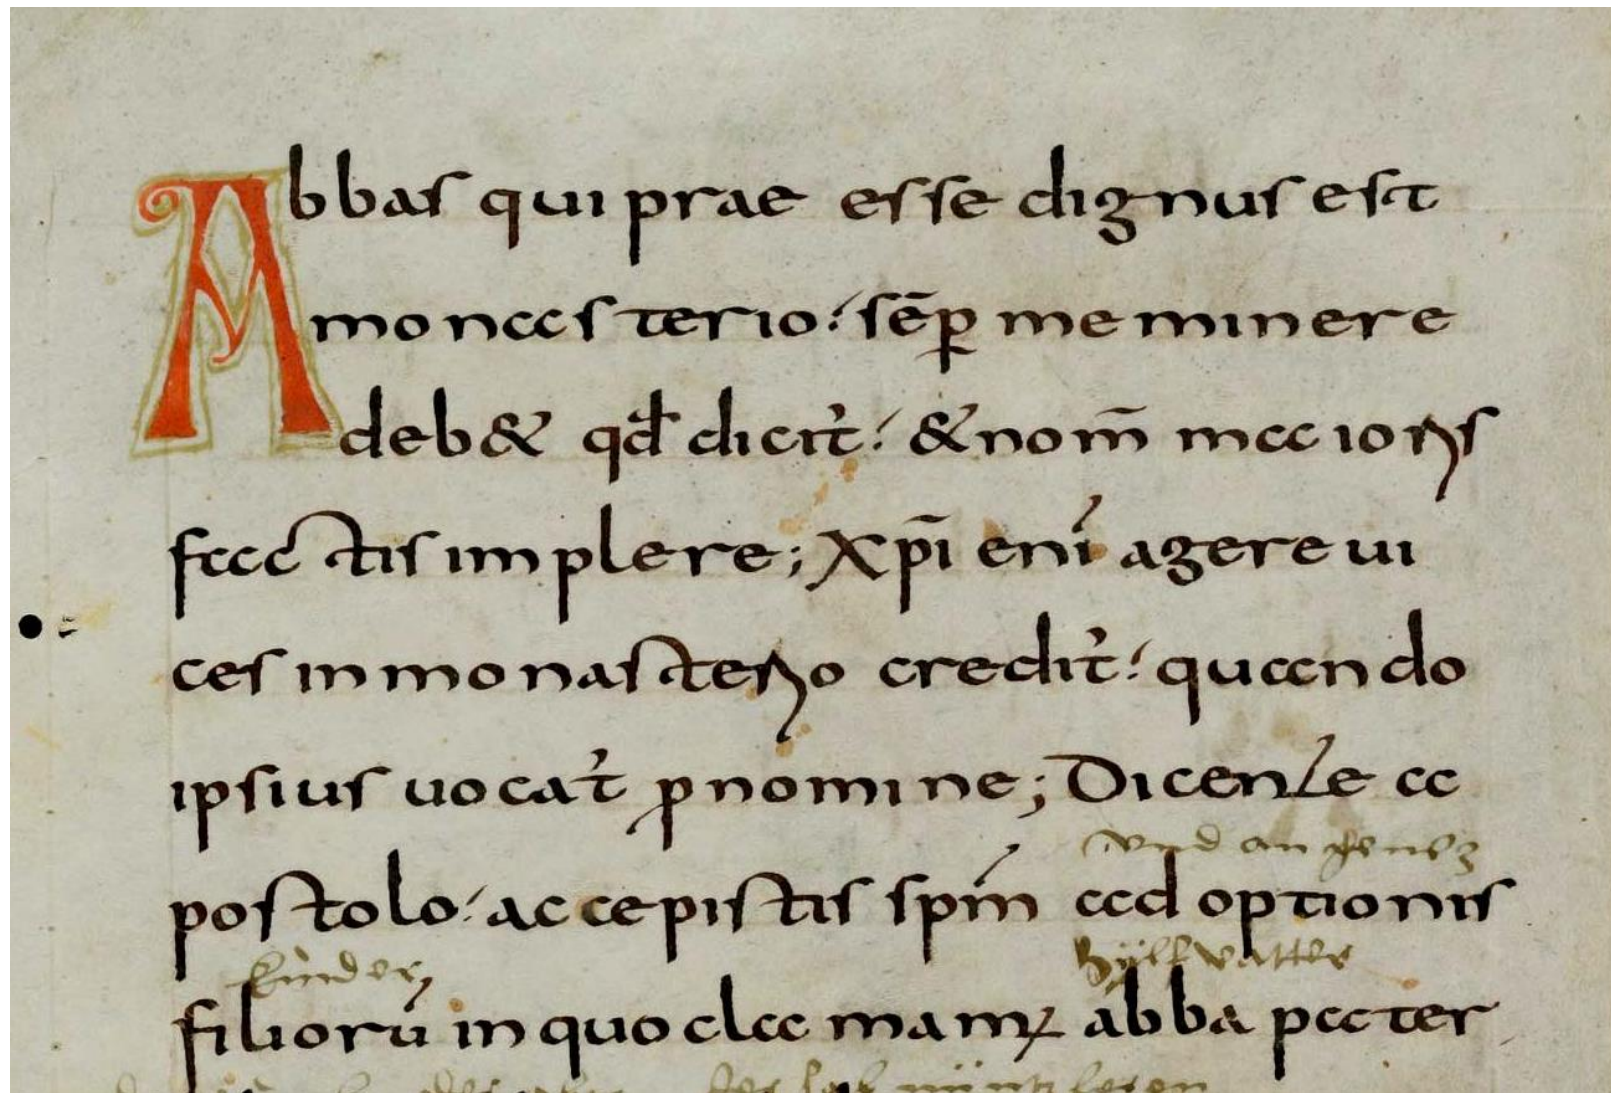 Abbas qui prae esse dignus est
monasterio: sēp meminere
deb& qđ dicit̉: & nom̄ maioris
factis implere; Xp̄i eni̓ agere ui
ces in monasterio credit̉: quando
ipsius uocat̉ ꝓnomine; Dicente a
und an genez
postolo: accepistis spm̓ adoptionis
kinder hyls vatter
filiorū in quo clamamꝰ abba pater